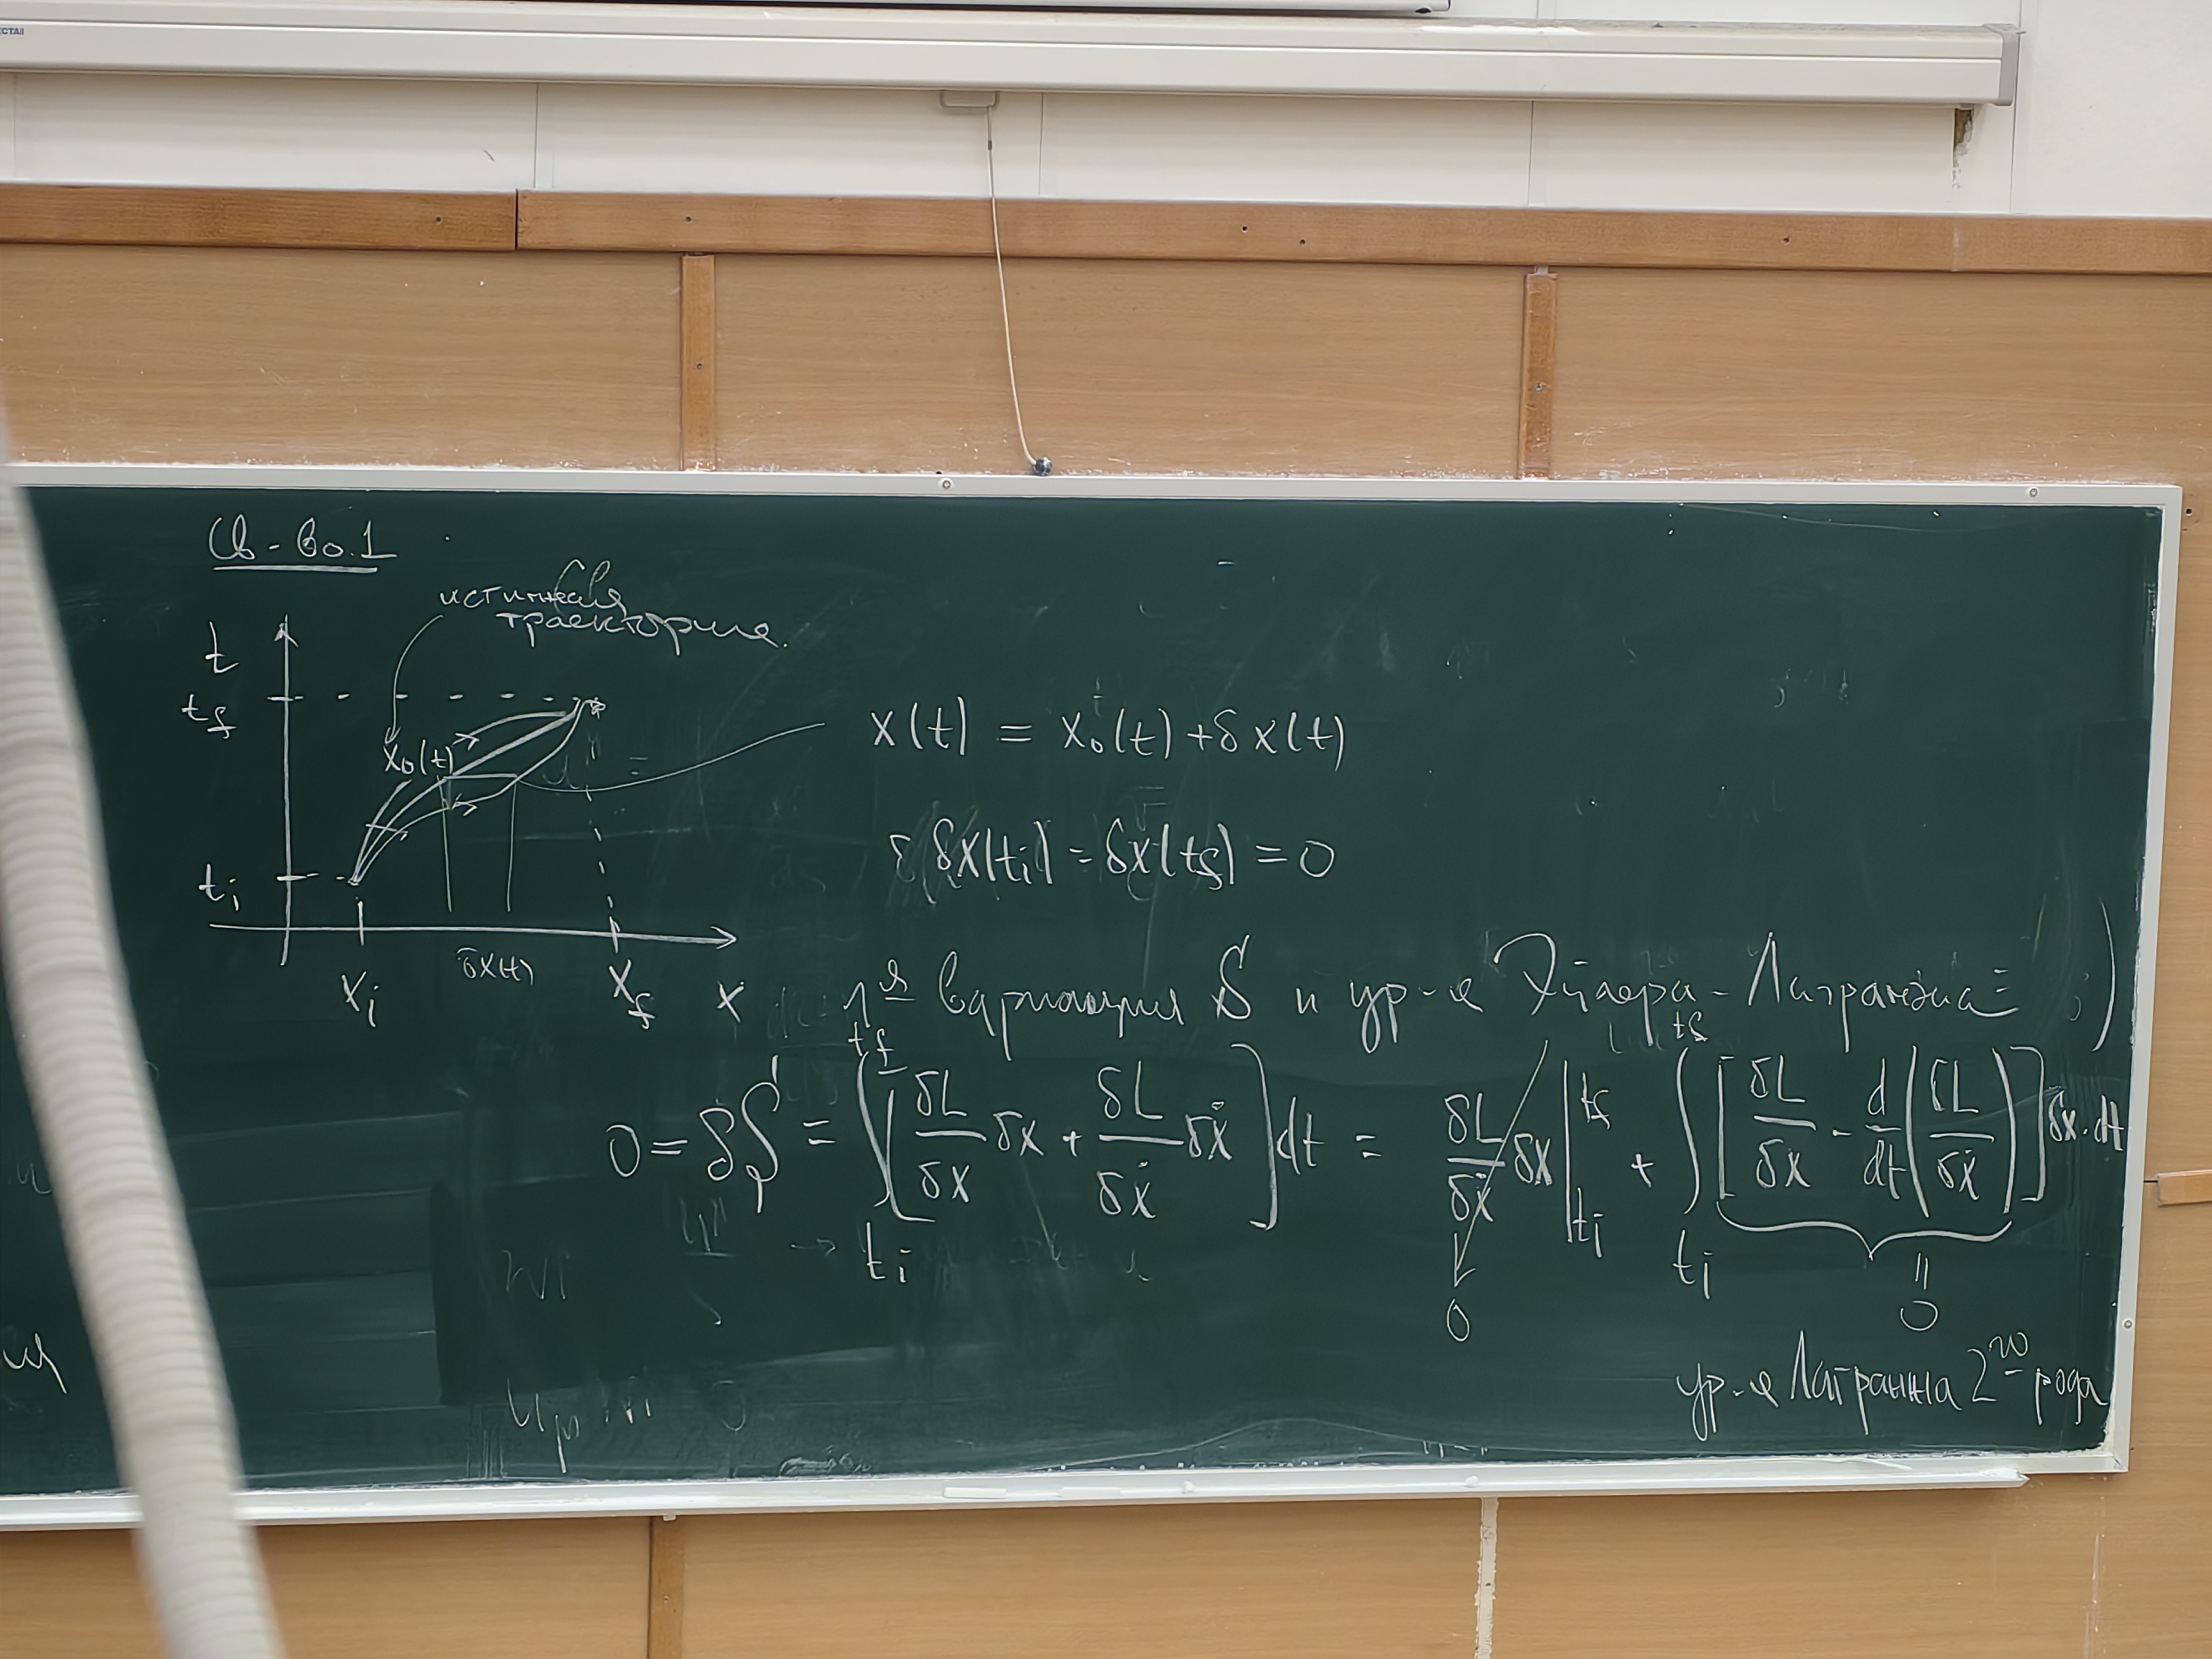 Св-во.1
истинная
траектория.
t
t_f
x_0(t)
t_i
x_i
δx(t)
x_f
x
x(t) = x_0(t) + δx(t)
δx(t_i) = δx(t_f) = 0
1ая вариация S и ур-е Эйлера-Лагранжа
0 = δS = ∫_{t_i}^{t_f} [ δL/δx δx + δL/δẋ δẋ ] dt = δL/δẋ δx |_{t_i}^{t_f} + ∫_{t_i}^{t_f} [ δL/δx - d/dt ( δL/δẋ ) ] δx·dt
0
= 0
ур-е Лагранжа 2го рода